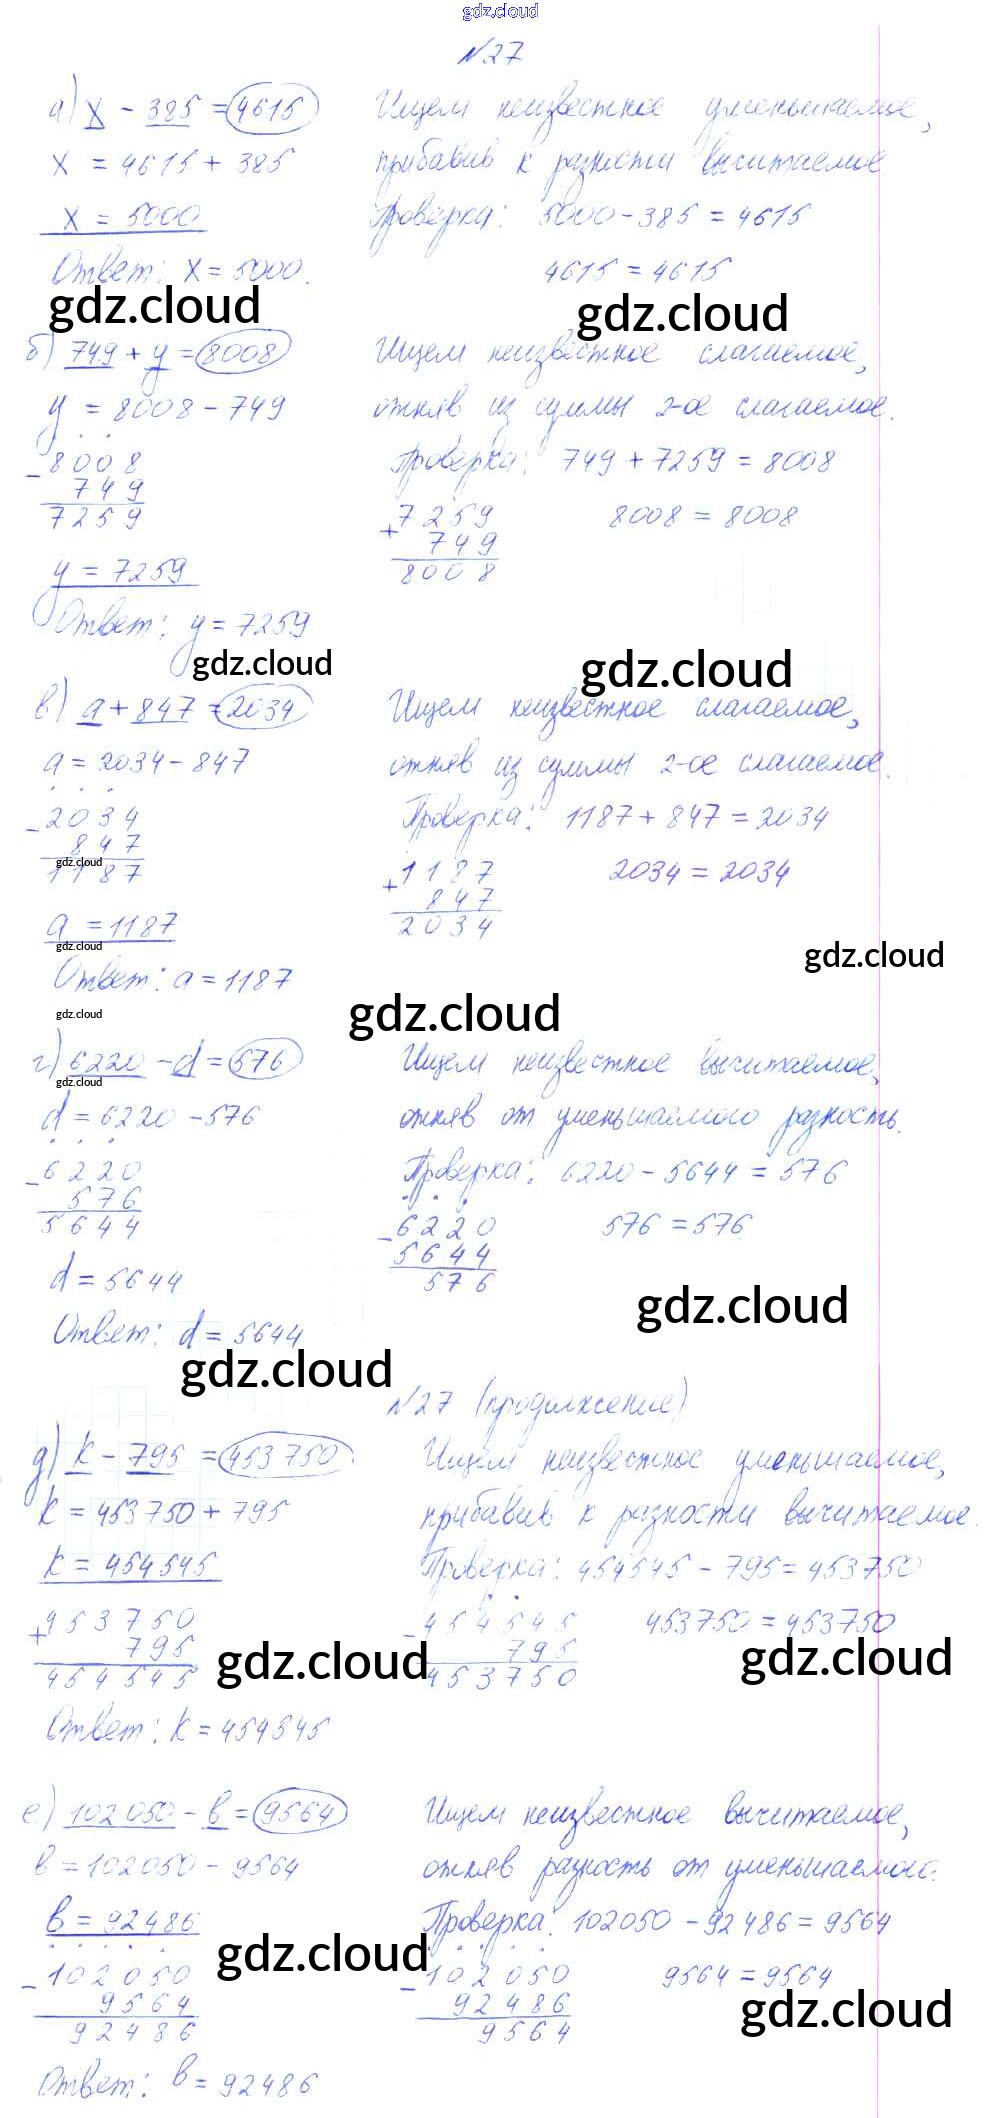 gdz.cloud
№27
а) x - 385 = 4615
Ищем неизвестное уменьшаемое,
x = 4615 + 385
прибавив к разности вычитаемое.
x = 5000
Проверка: 5000 - 385 = 4615
Ответ: x = 5000.
4615 = 4615
gdz.cloud
gdz.cloud
б) 749 + y = 8008
Ищем неизвестное слагаемое,
y = 8008 - 749
отняв из суммы 2-ое слагаемое.
- 8008
749
7259
Проверка: 749 + 7259 = 8008
+ 7259
749
8008
8008 = 8008
y = 7259
Ответ: y = 7259
gdz.cloud
gdz.cloud
в) a + 847 = 2034
Ищем неизвестное слагаемое,
a = 2034 - 847
отняв из суммы 2-ое слагаемое.
- 2034
847
1187
gdz.cloud
Проверка: 1187 + 847 = 2034
+ 1187
847
2034
2034 = 2034
a = 1187
gdz.cloud
gdz.cloud
Ответ: a = 1187
gdz.cloud
gdz.cloud
г) 6220 - d = 576
Ищем неизвестное вычитаемое,
gdz.cloud
d = 6220 - 576
отняв от уменьшаемого разность.
- 6220
576
5644
Проверка: 6220 - 5644 = 576
- 6220
5644
576
576 = 576
d = 5644
gdz.cloud
Ответ: d = 5644
gdz.cloud
№27 (продолжение)
д) k - 795 = 453750
Ищем неизвестное уменьшаемое,
k = 453750 + 795
прибавив к разности вычитаемое.
k = 454545
Проверка: 454545 - 795 = 453750
+ 453750
795
454545
- 454545
795
453750
453750 = 453750
gdz.cloud
gdz.cloud
Ответ: k = 454545
е) 102050 - в = 9564
Ищем неизвестное вычитаемое,
в = 102050 - 9564
отняв разность от уменьшаемого.
в = 92486
Проверка: 102050 - 92486 = 9564
gdz.cloud
- 102050
9564
92486
- 102050
92486
9564
9564 = 9564
gdz.cloud
Ответ: в = 92486